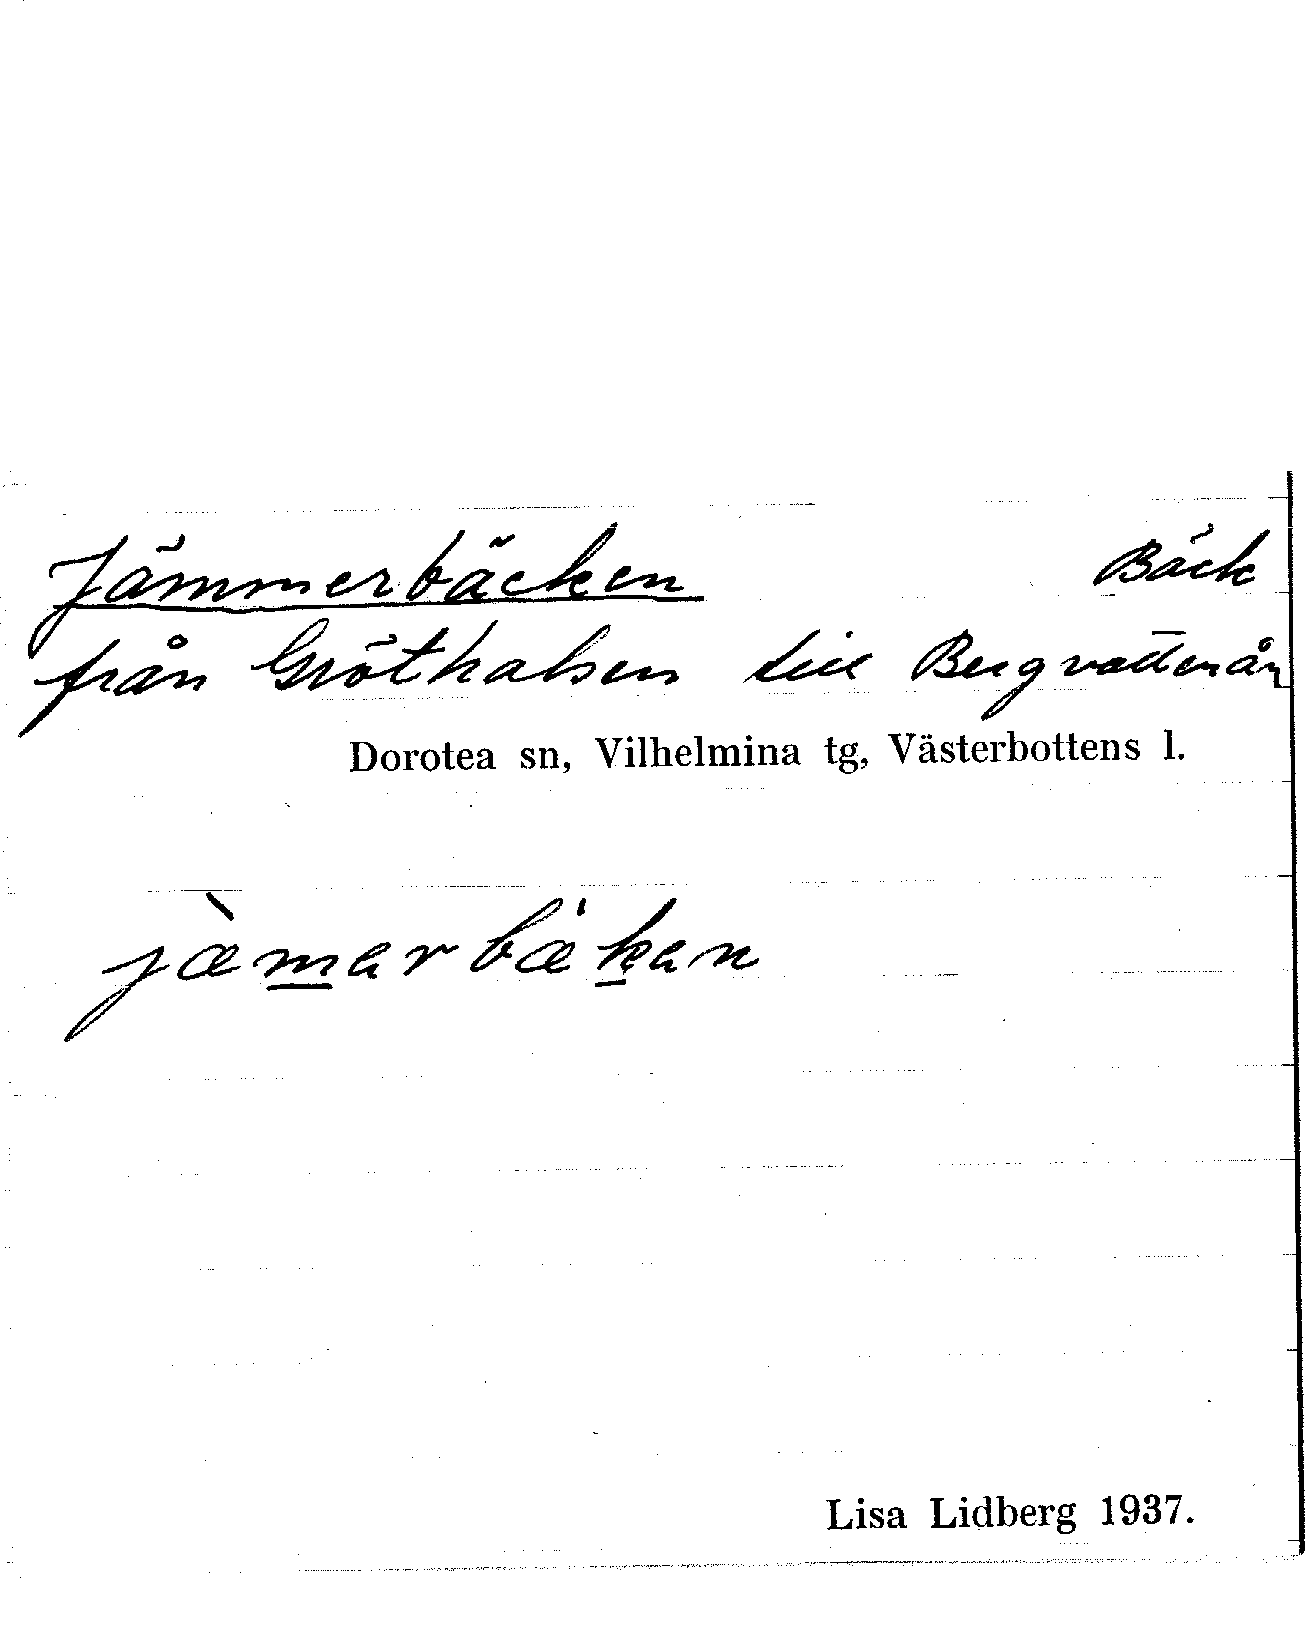 Jämmerbäcken Bäck
från Gröthalsen till Bergvattenån
Dorotea sn, Vilhelmina tg, Västerbottens l.
jæ̀marbæ'kan
Lisa Lidberg 1937.